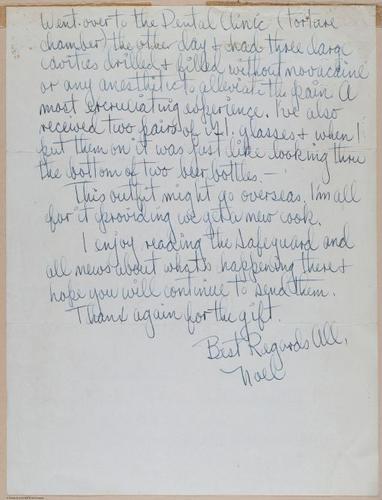 Went over to the Dental Clinic (torture
chamber) the other day & had three large
cavities drilled & filled without novacaine
or any anesthetic to alleviate the pain. A
most excruciating experience. I've also
received two pairs of G.I. glasses & when I
put them on it was just like looking thru
the bottom of two beer bottles. —
This outfit might go overseas. I'm all
for it providing we get a new cook.
I enjoy reading the Safeguard and
all news about what's happening there &
hope you will continue to send them.
Thanx again for the gift.
Best Regards All,
Noel